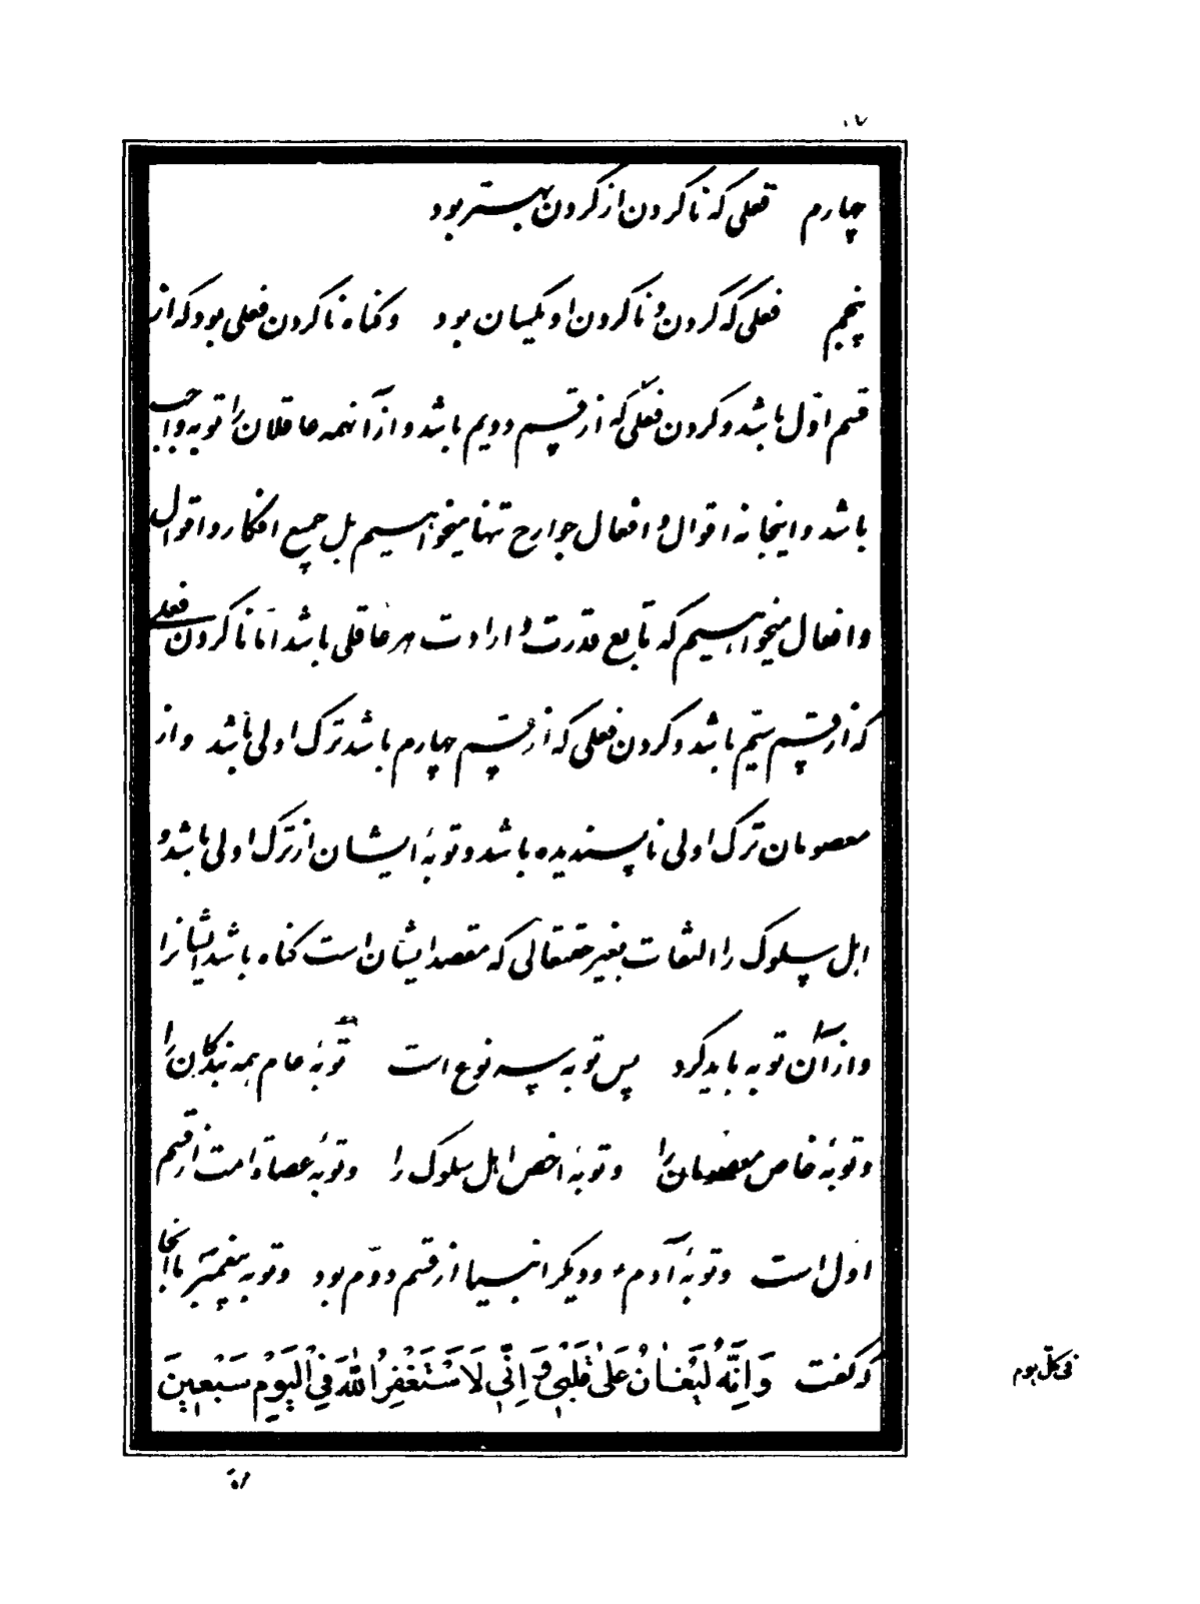 چهارم فعلی که ناکردن از کردن بهتر بود
پنجم فعلی که کردن و ناکردن او یکسان بود و کناه ناکردن فعلی بود که از
قسم اوّل باشد و کردن فعلی که از قسم دویم باشد و از آنهمه عاقلان را توبه واجب
باشد و اینجا نه اقوال و افعال جوارح تنها میخواهیم بل جمیع افکار و اقوال
و افعال میخواهیم که تابع قدرت و ارادت هر عاقلی باشد امّا ناکردن فعلی
که از قسم سیّم باشد و کردن فعلی که از قسم چهارم باشد ترک اولی باشد و از
معصومان ترک اولی ناپسندیده باشد و توبهٔ ایشان از ترک اولی باشد و
اهل سلوک را التفات بغیر حقتعالی که مقصد ایشان است کناه باشد ایشانرا
و از آن توبه باید کرد پس توبه سه نوع است توبهٔ عام همه بندکان را
و توبهٔ خاص معصومان را و توبهٔ اخص اهل سلوک را و توبهٔ عصاة امت از قسم
اول است و توبهٔ آدم ء و دیکر انبیا از قسم دوّم بود و توبه پیغمبر ما آنجا
که کفت وَاِنَّهُ لَیُغٰانُ عَلیٰ قَلْبی وَ اِنّی لَاَسْتَغْفِرُ اللّٰهَ فِی الْیَوْمِ سَبْعینَ
فی کلّ یوم
مرّة